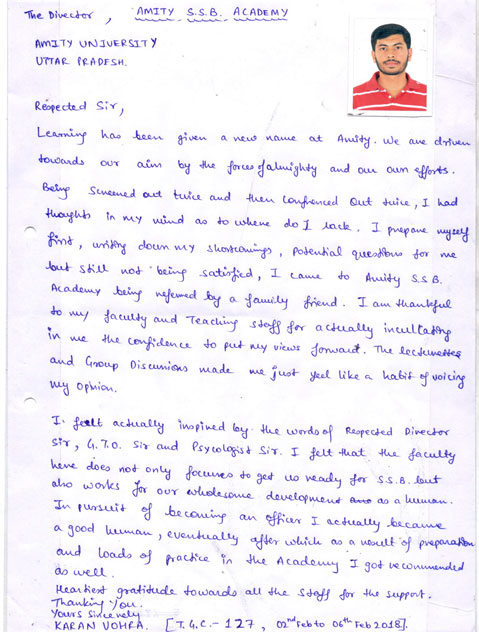 The Director, AMITY S.S.B. ACADEMY
AMITY UNIVERSITY
UTTAR PRADESH.
Respected Sir,
Learning has been given a new name at Amity. We are driven
towards our aim by the forces of almighty and our own efforts.
Being Screened out twice and then Conferenced Out twice, I had
thoughts in my mind as to where do I lack. I prepare myself
first, writing down my shortcomings, Potential questions for me
but still not being satisfied, I came to Amity S.S.B.
Academy being referred by a family friend. I am thankful
to my faculty and Teaching staff for actually incultating
in me the confidence to put my views forward. The lecturettes
and Group Discussions made me just feel like a habit of voicing
my Opinion.
I felt actually inspired by the words of Respected Director
Sir, G.T.O. Sir and Psycologist Sir. I felt that the faculty
here does not only focuses to get us ready for S.S.B. but
also works for our wholesome development as a human.
In pursuit of becoming an officer I actually became
a good human, eventually after which as a result of preparation
and loads of practice in the Academy I got recommended
as well.
Heartiest gratitude towards all the staff for the support.
Thanking You.
Yours Sincerely
KARAN VOHRA. [T.G.C.-127, 02nd Feb to 06th Feb 2018].